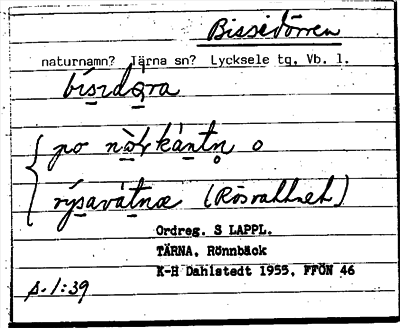 Bissidörren
naturnamn? Tärna sn? Lycksele tg, Vb. l.
bísıdøra
po nòṛkántn o
rýsavátnæ (Rösvattnet)
Ordreg. S LAPPL.
TÄRNA, Rönnbäck
K-H Dahlstedt 1955, FFÖN 46
s. 1:39